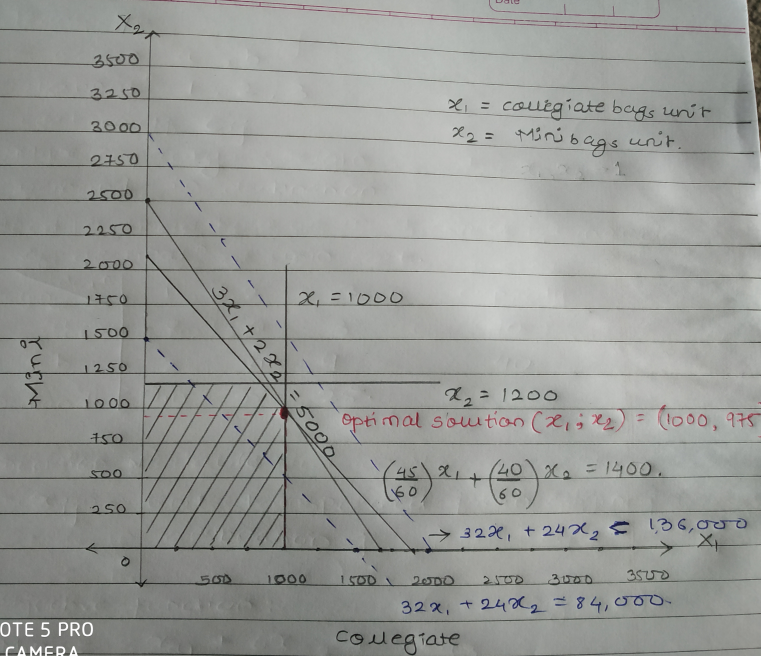 Date
X₂
3500
3250
3000
2750
2500
2250
2000
1750
1500
1250
1000
750
500
250
0
Mini
x₁ = collegiate bags unit
x₂ = Mini bags unit.
x₁ = 1000
3x₁ + 2x₂ = 5000
x₂ = 1200
optimal solution (x₁; x₂) = (1000, 975
(45/60) x₁ + (40/60) x₂ = 1400.
→ 32x₁ + 24x₂ = 136,000
X₁
500 1000 1500 2000 2500 3000 3500
32x₁ + 24x₂ = 84,000.
Collegiate
OTE 5 PRO
CAMERA